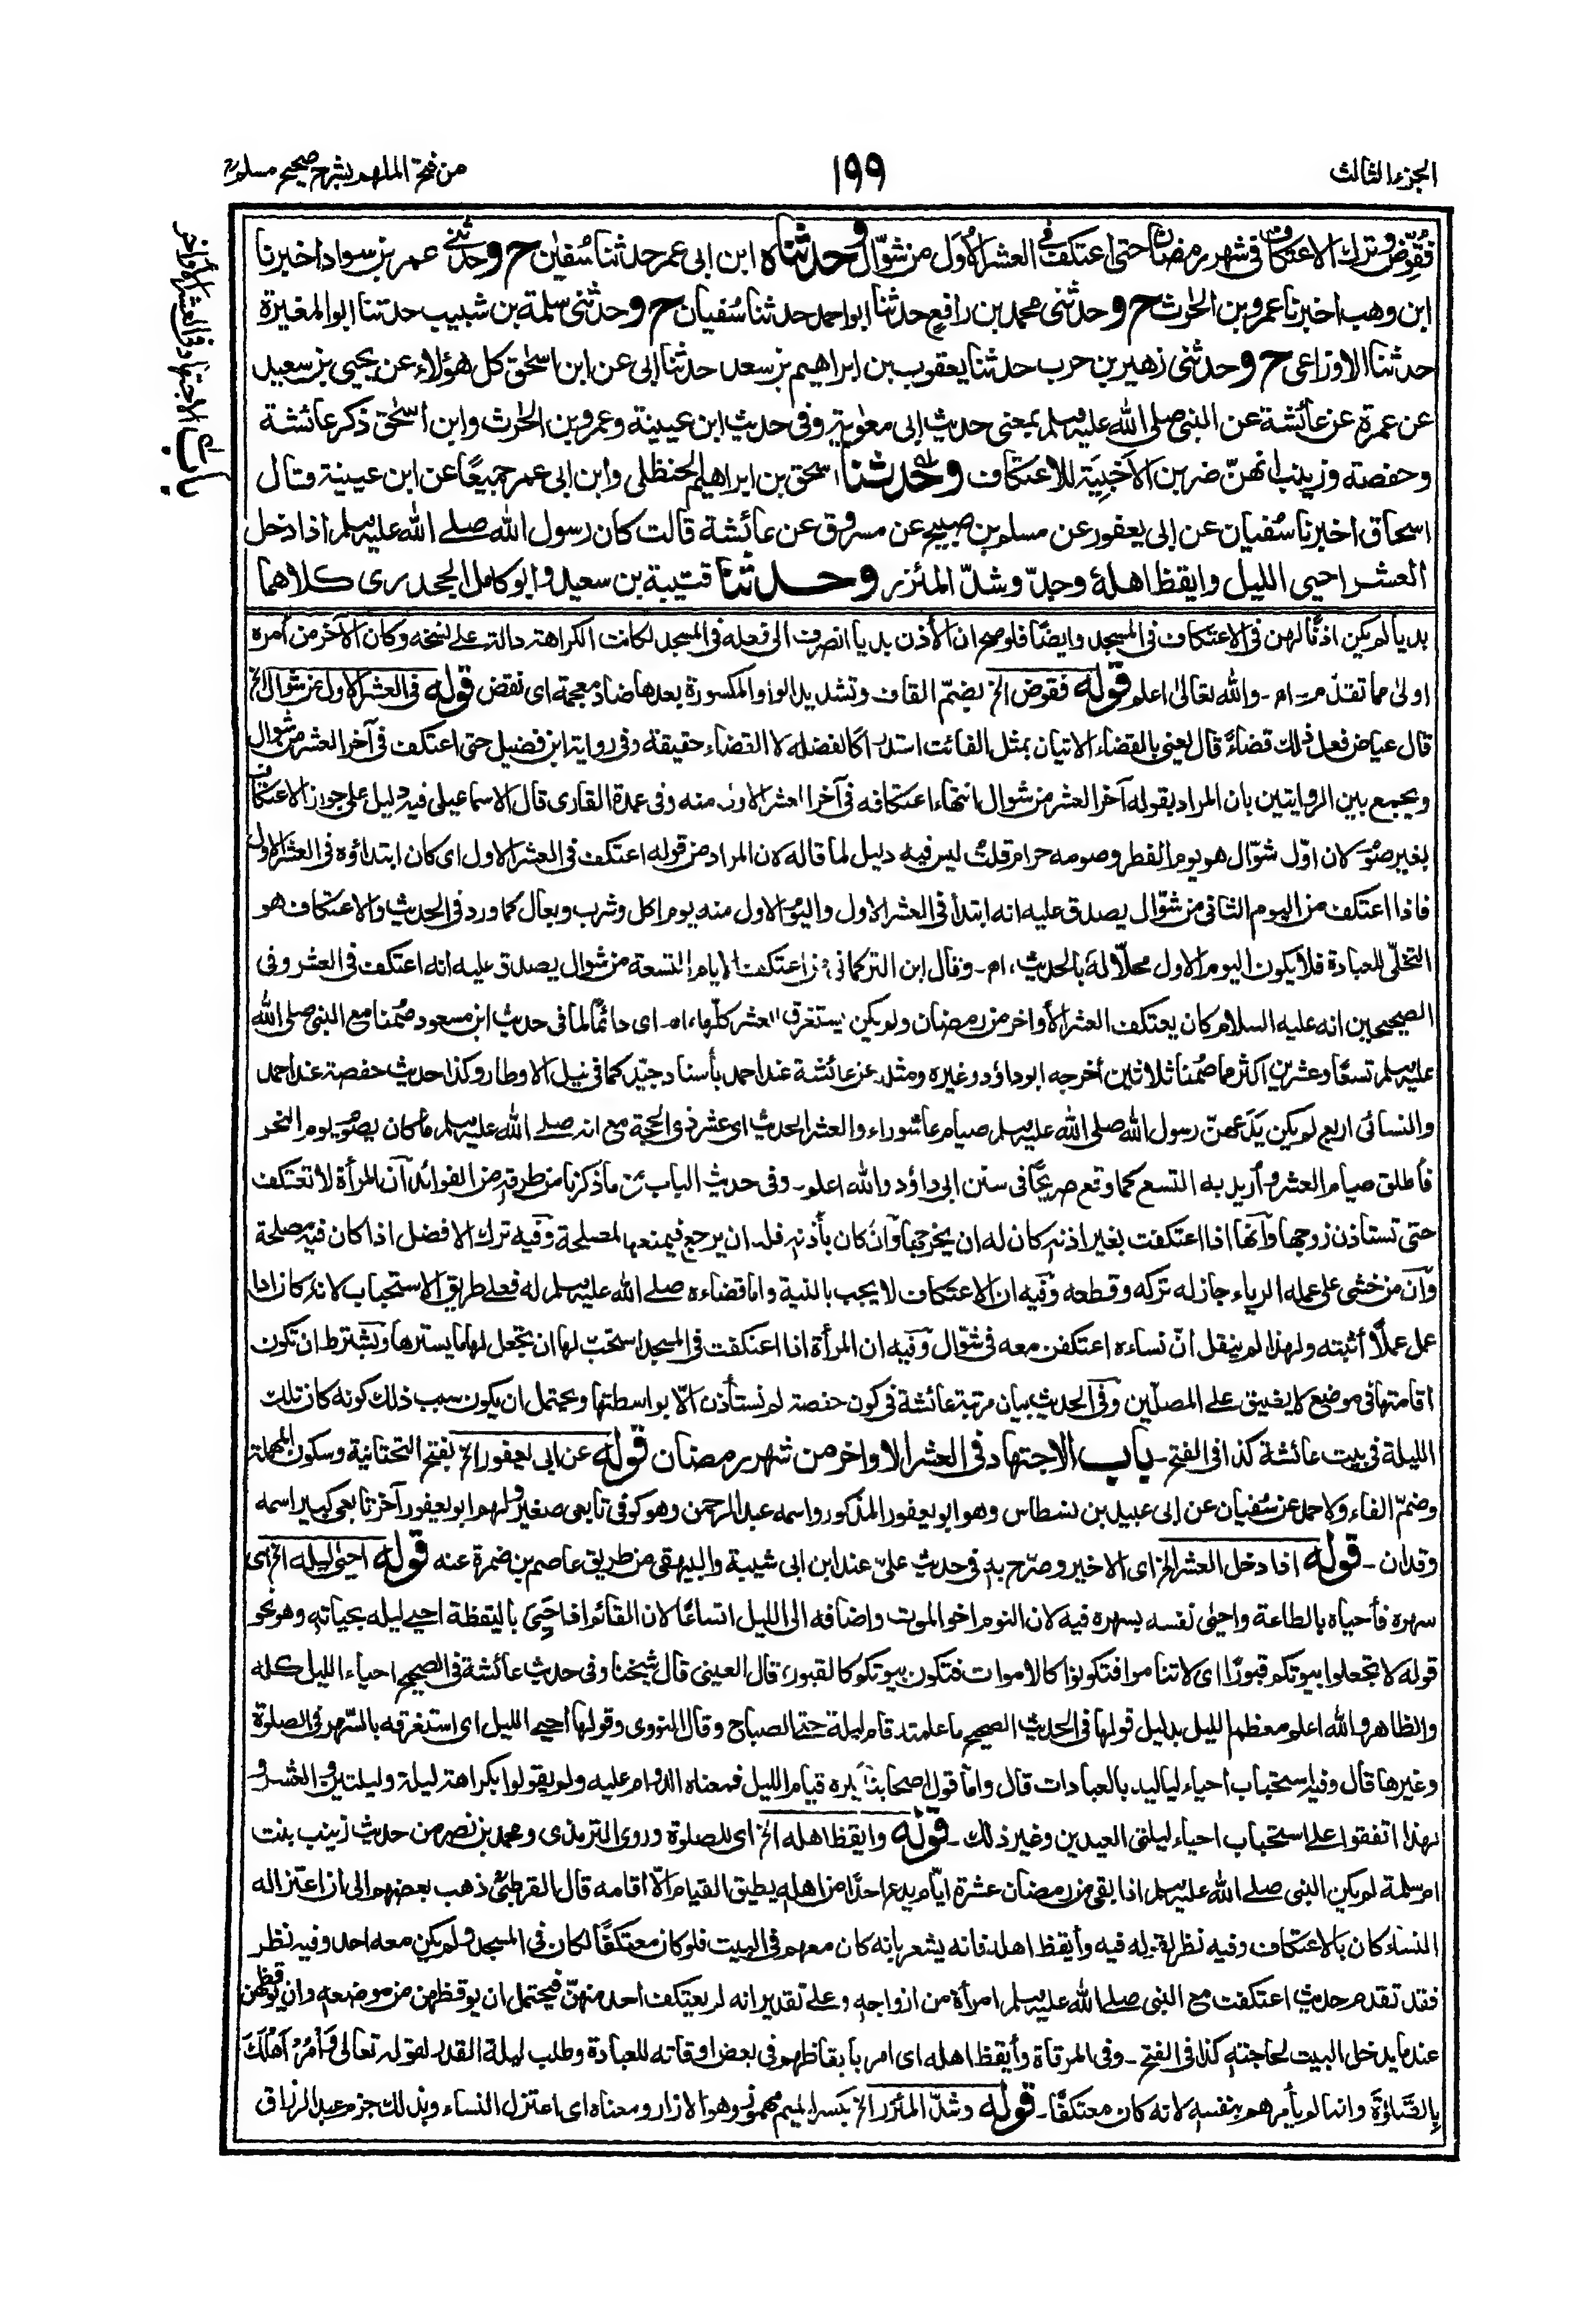 الجزء الثالث
١٩٩
من فتح الملهم بشرح صحيح مسلم
باب الاجتهاد فى العشر الاواخر
فقُوِّض وترك الاعتكاف فى شهر رمضان حتى اعتكف فى العشر الاُوَل من شوّال وحدثناه ابن ابى عمر حدثنا سُفيٰن ح وحدثنى عمرو بن سواد اخبرنا
ابن وهب اخبرنا عمرو بن الحٰرث ح وحدثنى محمد بن رافع حدثنا ابو احمد حدثنا سُفيان ح وحدثنى سلمة بن شبيب حدثنا ابو المغيرة
حدثنا الاوزاعى ح وحدثنى زهير بن حرب حدثنا يعقوب بن ابراهيم بن سعد حدثنا ابى عن ابن اسحٰق كل هؤلاء عن يحيى بن سعيد
عن عمرة عن عائشة عن النبى صلى الله عليه وسلم بمعنى حديث ابى معٰوية وفى حديث ابن عيينة وعمرو بن الحٰرث وابن اسحٰق ذكر عائشة
وحفصة وزينب انهنّ ضربن الاَخبِيَة للاعتكاف وحدثنا اسحٰق بن ابراهيم الحنظلى وابن ابى عمر جميعًا عن ابن عيينة قال
اسحاق اخبرنا سُفيان عن ابى يعفور عن مسلم بن صبيح عن مسروق عن عائشة قالت كان رسول الله صلے الله عليه وسلم اذا دخل
العشر احيى الليل وايقظ اهلهٗ وجدّ وشدّ المئزر وحدثنا قتيبة بن سعيد وابو كامل الجحدرى كلاهما
بد يا لم يكن اذنًا لهن فى الاعتكاف فى المسجد وايضًا فلو صح ان الأذن بد يا انصرف الى فعله فى المسجد لكانت الكراهة دالة على نسخه وكان الآخر من أمره
اولى مما تقدّم اه - والله تعالىٰ اعلم قوله فقوض الخ بضمّ القاف وتشديد الواو المكسورة بعدها ضاد معجمة اى نقض قوله فى العشر الاول من شوال الخ
قال عياض فعل ذلك قضاءً قال يعنى بالقضاء الاتيان بمثل الفائت استدراكًا لفضله لا القضاء حقيقة وفى رواية ابن فضيل حتى اعتكف فى آخر العشر من شوال
ويجمع بين الروايتين بان المراد بقوله آخر العشر من شوال انتهاء اعتكافه فى آخر العشر الاول منه وفى عمدة القارى قال الاسماعيلى فيه دليل على جواز الاعتكاف
بغير صوم لان اوّل شوّال هو يوم الفطر وصومه حرام قلتُ ليس فيه دليل لما قاله لان المراد من قوله اعتكف فى العشر الاول اى كان ابتداؤه فى العشر الاول
فاذا اعتكف من اليوم الثانى من شوّال يصدق عليه انه ابتدأ فى العشر الاول واليوم الاول منه يوم اكل وشرب وبعال كما ورد فى الحديث والاعتكاف هو
التخلّى للعبادة فلا يكون اليوم الاول محلًا له بالحديث، اه - وقال ابن التركمانى اعتكف الايام التسعة من شوال يصدق عليه انه اعتكف فى العشر وفى
الصحيحين انه عليه السلام كان يعتكف العشر الأواخر من رمضان ولم يكن يستغرق العشر كلّها، اه - اى دائمًا لما فى حديث ابن مسعود صُمنا مع النبى صلى الله
عليه وسلم تسعًا وعشرين اكثر ما صُمنا ثلاثين أخرجه ابو داؤد وغيره ومثله عن عائشة عند احمد بأسناد جيّد كما فى نيل الاوطار وكذا حديث حفصة عند احمد
والنسائى اربع لم يكن يَدَعهنّ رسول الله صلى الله عليه وسلم صيام عاشوراء والعشر الحديث اى عشر ذى الحجة مع انه صلے الله عليه وسلم ما كان يصوم يوم النحر
فأطلق صيام العشر وأريد به التسع كما وقع صريحًا فى سنن ابى داؤد والله اعلم - وفى حديث الباب من ما ذكرنا من طرقه من الفوائد أن المرأة لا تعتكف
حتى تستأذن زوجها وأنها اذا اعتكفت بغير اذنه كان له ان يخرجها وأن كان بأذنه فله ان يرجع فيمنعها لمصلحة وفيه ترك الافضل اذا كان فيه مصلحة
وأن من خشى على عمله الرياء جاز له تركه وقطعه وفيه ان الاعتكاف لا يجب بالنية واما قضاءه صلے الله عليه وسلم له فعلى طريق الاستحباب لانه كان اذا
عمل عملًا أثبته ولهذا لم ينقل انّ نساءه اعتكفن معه فى شوّال وفيه ان المرأة اذا اعتكفت فى المسجد استحب لها ان تجعل لها ما يسترها ويشترط ان تكون
اقامتها فى موضع لا يضيق على المصلّين وفى الحديث بيان مرتبة عائشة فى كون حفصة لم تستأذن الّا بواسطتها ويحتمل ان يكون سبب ذلك كونه كان تلك
الليلة فى بيت عائشة كذا فى الفتح - باب الاجتهاد فى العشر الاواخر من شهر رمضان قوله عن ابى يعفور الخ بفتح التحتانية وسكون المهملة
وضمّ الفاء ولاحمد عن سُفيان عن ابى عبيد بن نسطاس وهو ابو يعفور المذكور واسمه عبد الرحمن وهو كوفى تابعى صغير ولهم ابو يعفور آخر تابعى كبير اسمه
وقدان - قوله اذا دخل العشر الخ اى الاخير وصرّح به فى حديث علىّ عند ابن ابى شيبة والبيهقى من طريق عاصم بن ضمرة عنه قوله احيىٰ ليله الخ اى
سهره فأحياه بالطاعة واحيىٰ نفسه بسهره فيه لان النوم اخو الموت واضافه الى الليل اتساعًا لان القائم اذا حَيِىَ باليقظة احيى ليله بحياته وهو نحو
قوله لا تجعلوا بيوتكم قبورًا اى لا تناموا فتكونوا كالاموات فتكون بيوتكم كالقبور، قال العينى قال شيخنا وفى حديث عائشة فى الصحيح احياء الليل كله
والظاهر والله اعلم معظم الليل بدليل قولها فى الحديث الصحيح ما علمته قام ليلة حتى الصباح وقال النووى وقولها احيى الليل اى استغرقه بالسّهر فى الصلوة
وغيرها قال وفيه استحباب احياء لياليه بالعبادات قال واما قول اصحابنا يكره قيام الليل فمعناه الدوام عليه ولم يقولوا بكراهة ليلة وليلتين والعشر و
لهذا اتفقوا على استحباب احياء ليلتى العيدين وغير ذلك - قوله وايقظ اهله الخ اى للصلوة وروى الترمذى ومحمد بن نصر من حديث زينب بنت
ام سلمة لم يكن النبى صلے الله عليه وسلم اذا بقى من رمضان عشرة ايّام يدع احدًا من اهله يطيق القيام الّا اقامه قال القرطبىّ ذهب بعضهم الى ان اعتزاله
النساء كان بالاعتكاف وفيه نظر لقوله فيه وأيقظ اهله فانه يشعر بانه كان معهم فى البيت فلو كان معتكفًا لكان فى المسجد ولم يكن معه احد وفيه نظر
فقد تقدم حديث اعتكفت مع النبى صلے الله عليه وسلم امرأة من ازواجه وعلى تقدير انه لم يعتكف احد منهنّ فيحتمل ان يوقظهن من موضعه وان يوقظهن
عند ما يدخل البيت لحاجته كذا فى الفتح - وفى المرقاة وأيقظ اهله اى امر بأيقاظهم فى بعض اوقاته للعبادة وطلب ليلة القدر لقوله تعالى وَأْمُرْ اَهْلَكَ
بِالصَّلٰوةِ وانما لم يأمرهم بنفسه لانه كان معتكفًا - قوله وشدّ المئزر الخ بكسر الميم مهموز وهو الازار ومعناه اى اعتزل النساء وبذلك جزم عبد الرزاق